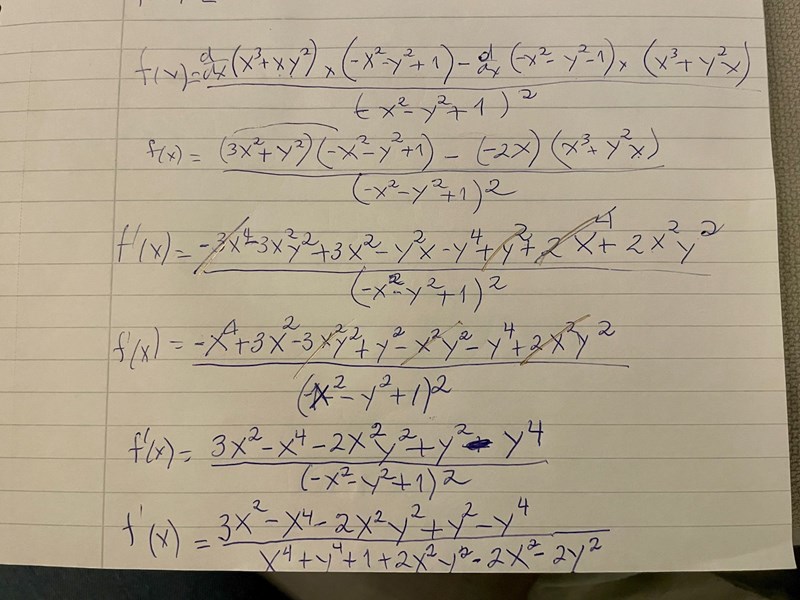 f(x) = d/dx (x³+xy²) × (-x²-y²+1) - d/dx (-x²-y²-1) × (x³+y²x) / (-x²-y²+1)²
f(x) = (3x²+y²)(-x²-y²+1) - (-2x)(x³+y²x) / (-x²-y²+1)²
f'(x) = -3x⁴-3x²y²+3x²-y²x-y⁴+y²+2x⁴+2x²y² / (-x²-y²+1)²
f'(x) = -x⁴+3x²-3x²y²+y²-x²y²-y⁴+2x²y² / (-x²-y²+1)²
f'(x) = 3x²-x⁴-2x²y²+y²-y⁴ / (-x²-y²+1)²
f'(x) = 3x²-x⁴-2x²y²+y²-y⁴ / x⁴+y⁴+1+2x²y²-2x²-2y²